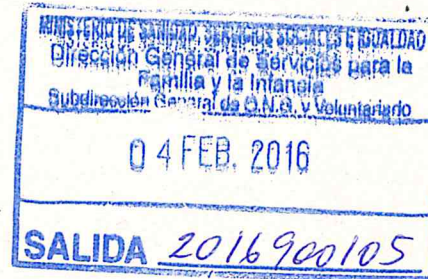 MINISTERIO DE SANIDAD, SERVICIOS SOCIALES E IGUALDAD
Dirección General de Servicios para la
Familia y la Infancia
Subdirección General de O.N.G. y Voluntariado
04 FEB. 2016
SALIDA 2016900105